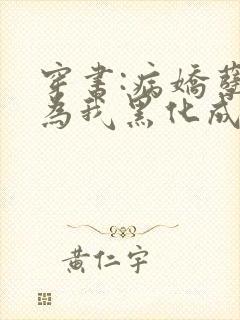 穿書:病嬌
為我黑化成
黃仁宇